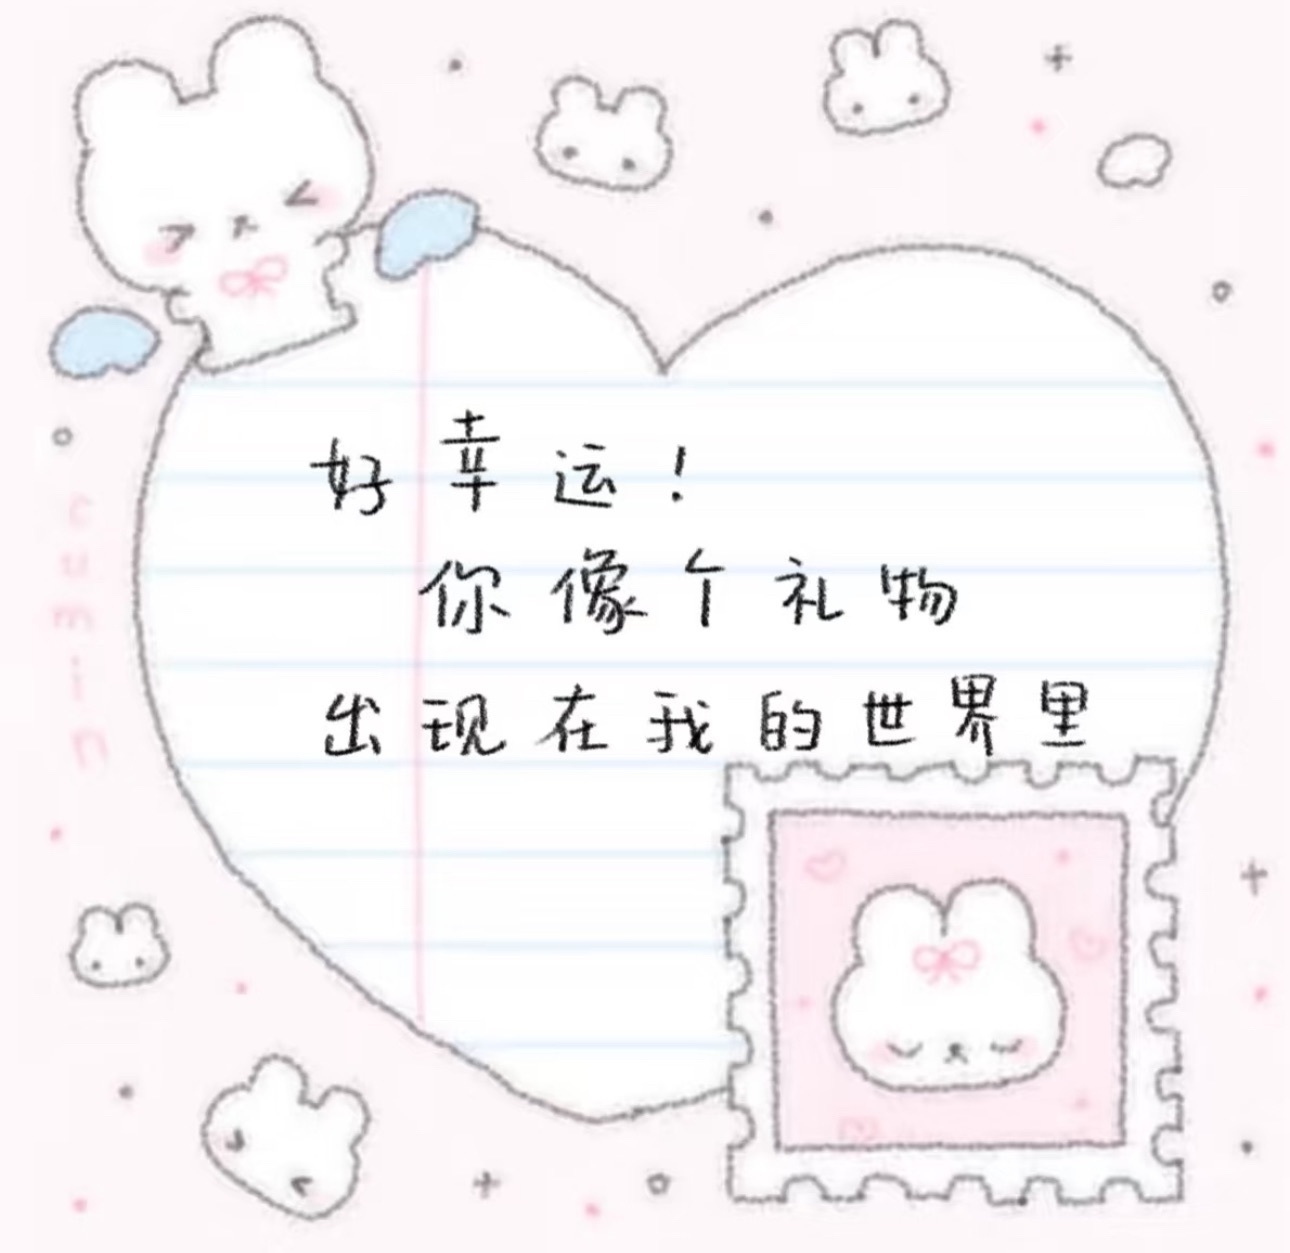 好幸运！
你像个礼物
出现在我的世界里
cumin